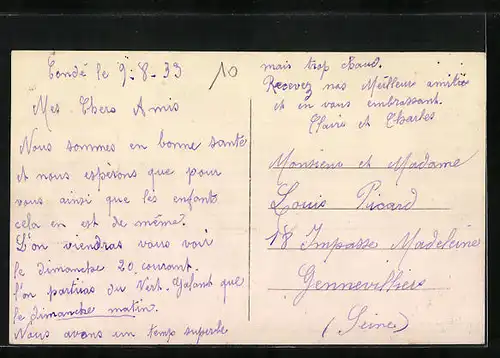 Condé le 9-8-33
10
Mes Chers Amis
Nous sommes en bonne santé
et nous espérons que pour
vous ainsi que les enfants
cela en est de même.
L'on viendras vous voir
le dimanche 20 courant.
l'on partiras du Vert. Galant que
le dimanche matin.
Nous avons un temps superbe
mais trop chaud.
Recevez nos Meilleur amitié
et en vous embrassant.
Claire et Charles
Monsieur et Madame
Louis Picard
18 Impasse Madeleine
Gennevilliers
(Seine)